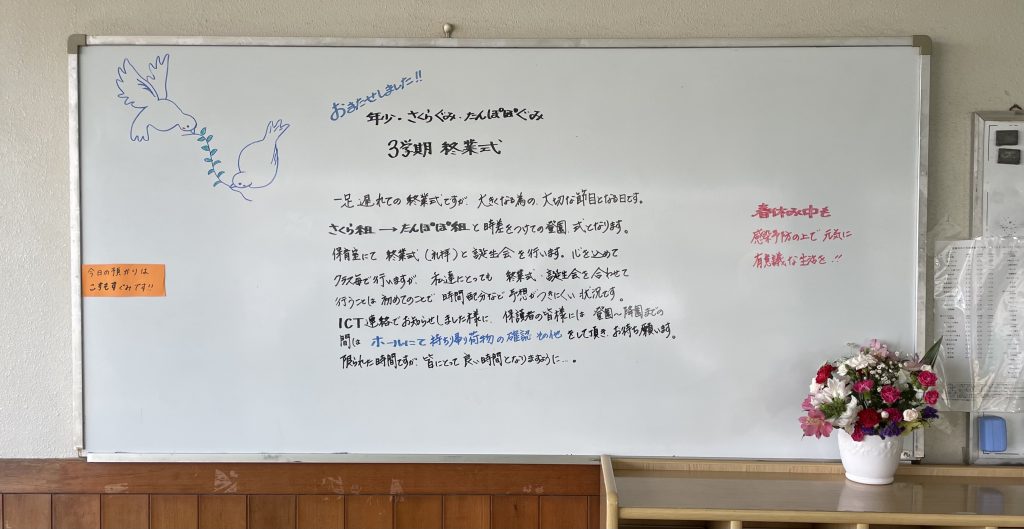 おまたせしました!!
年少・さくらぐみ・たんぽぽぐみ
3学期 終業式
一足遅れての終業式ですが、大きくなる為の、大切な節目となる日です。
さくら組 → たんぽぽ組 と時差をつけての登園 式となります。
保育室にて 終業式(礼拝)と誕生会を行います。心を込めて
クラス毎で行いますが、私達にとっても 終業式・誕生会を合わせて
行うことは初めてのことで 時間配分など予想がつきにくい状況です。
ICT連絡でお知らせしました様に、保護者の皆様には 登園〜降園までの
間は ホールにて持ち帰り荷物の確認 その他 をして頂き、お待ち願います。
限られた時間ですが、皆にとって良い時間となりますように…。
春休み中も
感染予防の上で 元気に
有意義な生活を!!
今日の預かりは
こすもすぐみです!!